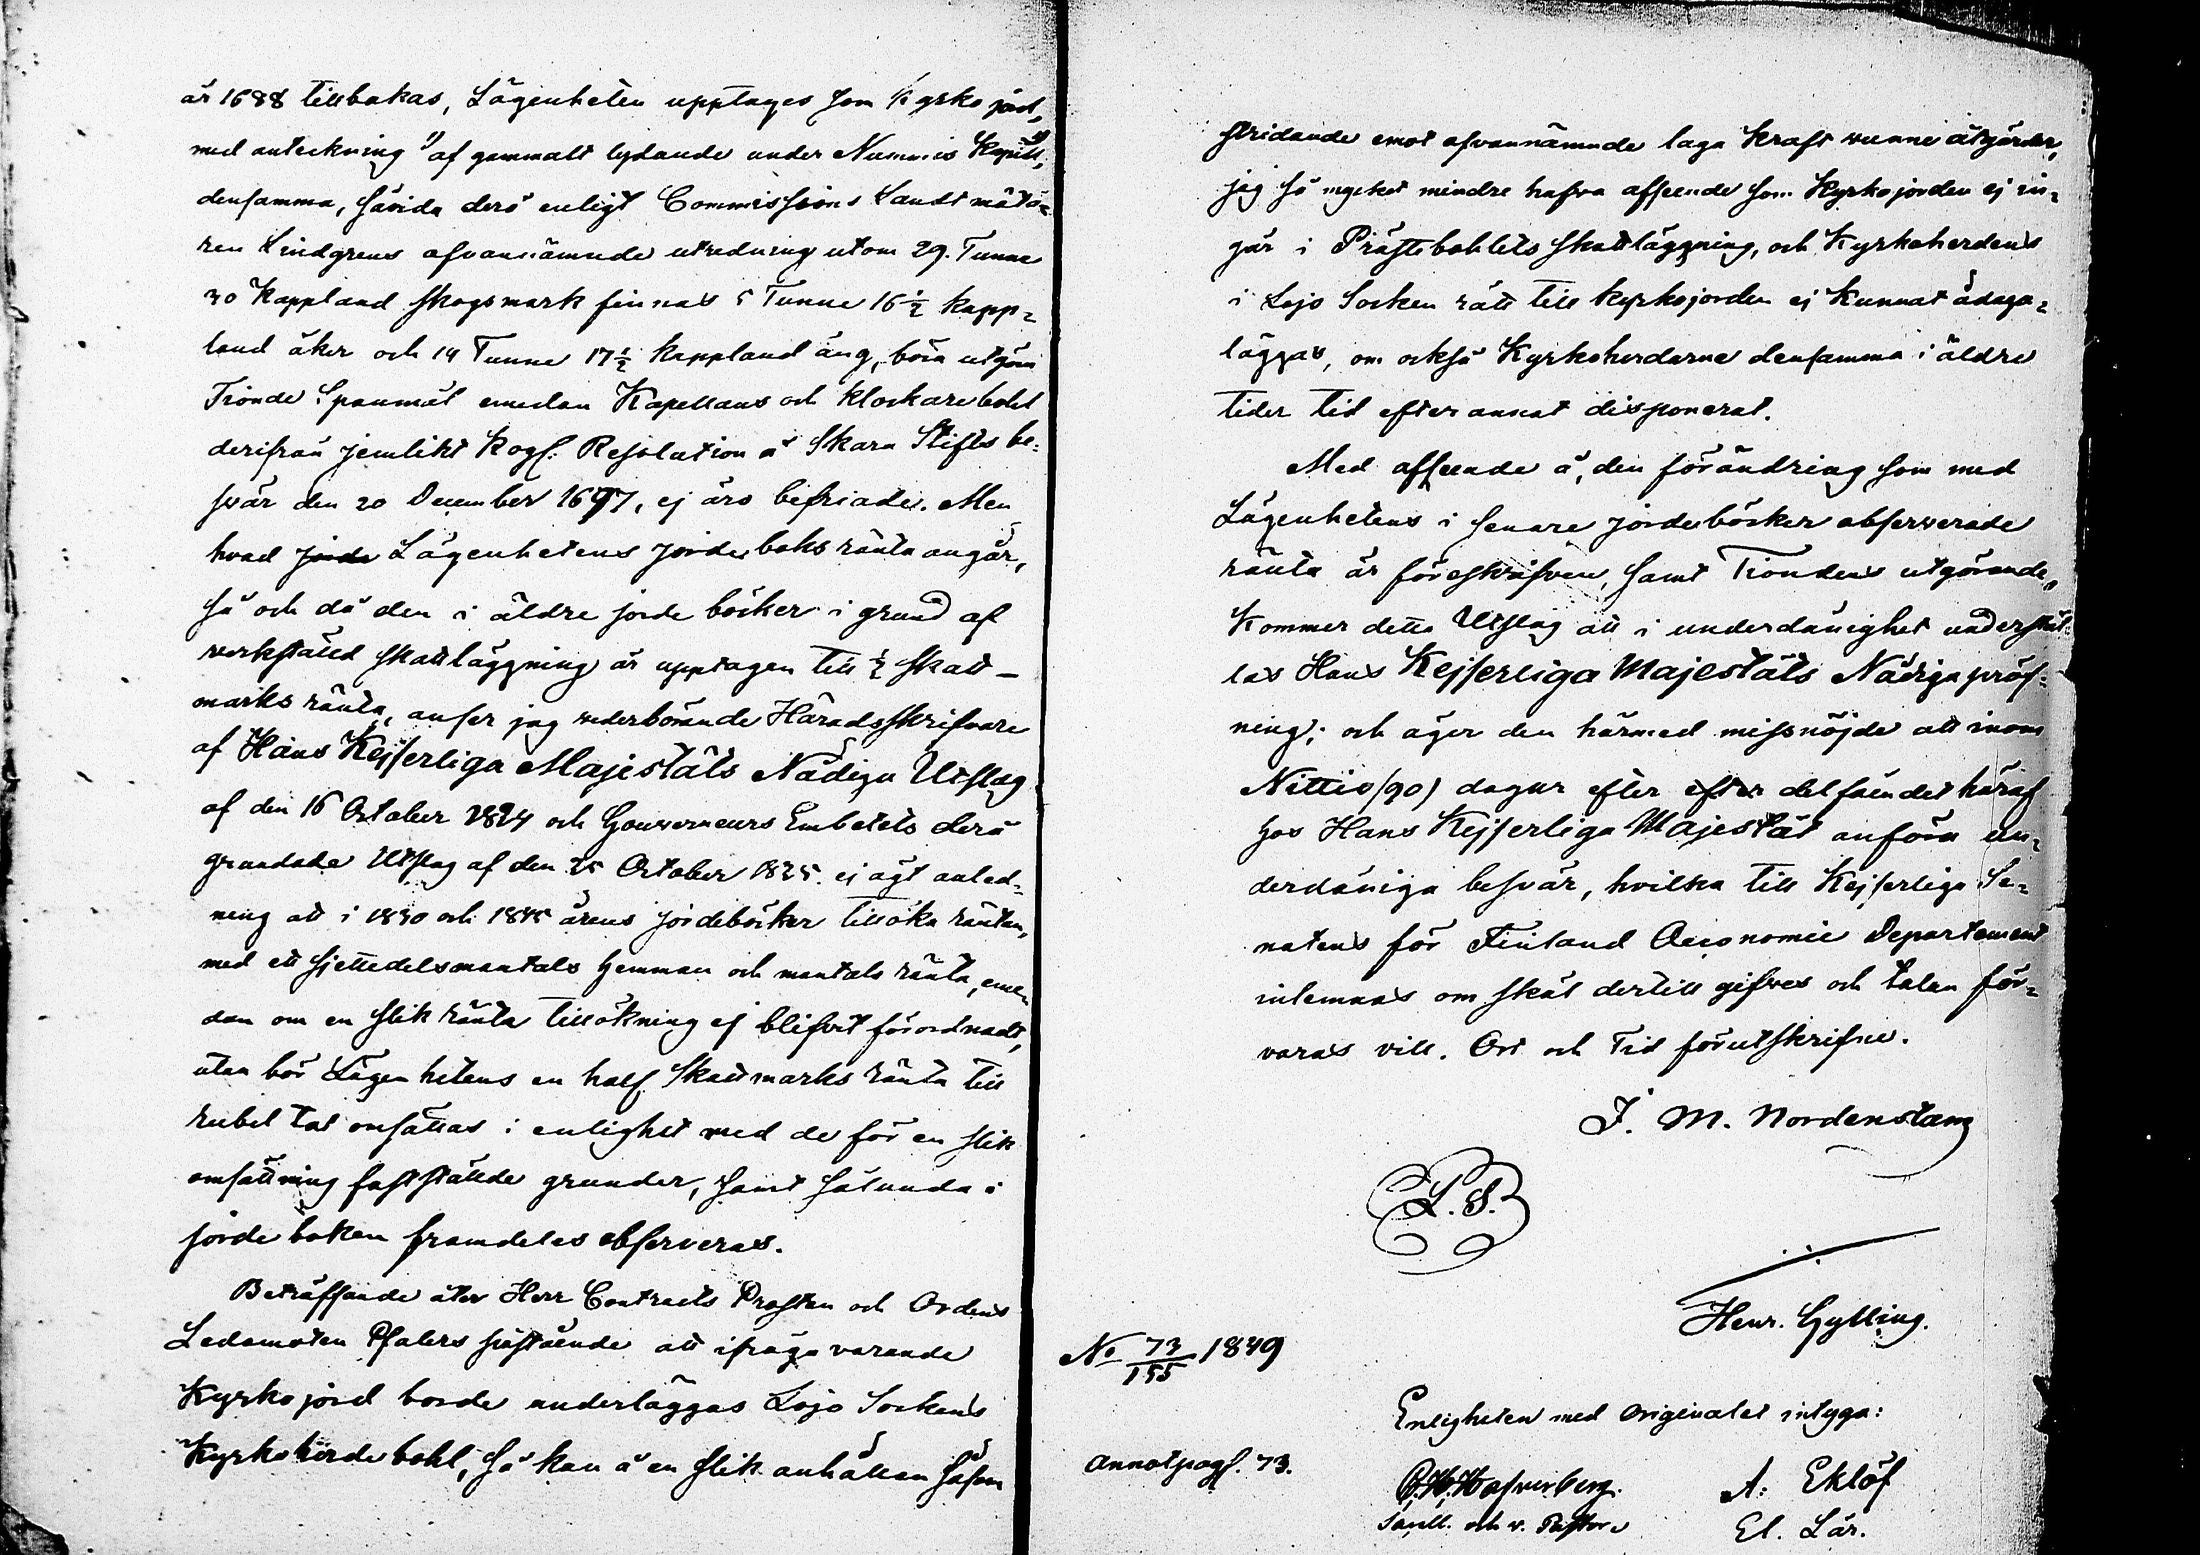 år 1688 tillbakas, Lägenheten upptages som Kyrko jord,
med anteckning "af gammalt lydande under Nummis Kapell,"
densamma, såvida derå enligt Commissions Landtmäta-
ren Lindgrens ofvannämnde utredning utom 29. Tunne
30 Kappland skogsmark finnas 5 Tunne 16 1/2 kapp-
land åker och 14 Tunne 17 1/2 kappland äng, böra utgöra
Tionde Spanmål emedan Kapellans och klockarebohl
derifrån jemlikt Kogl. Resolution å Skara Stifts be-
svär den 20 December 1697, ej äro befriade. Men
hvad jorde Lägenhetens jordeboks ränta angår,
så och då den i äldre jorde böcker i grund af
verkstäld skattläggning är upptagen till 1/2 skatt-
marks ränta, anser jag vederbörande Häradsskrifvare
af Hans Kejserliga Majestäts Nådiga Utslag
af den 16 October 1824 och Gouverneurs Embetets derå
grundade Utslag af den 25 October 1825. ej ägt anled-
ning att i 1830 och 1845 årens jordeböcker tillöka räntan,
med ett sjettedelsmantals hemman och mantals ränta, eme-
dan om en slik ränta tillökning ej blifvit förordnadt,
utan bör Lägenhetens en half Skattmarks ränta till
rubel tal omsättas i enlighet med de för en slik
omsättning fastställde grunder, samt sålunda i
jorde boken framdeles observeras.
Beträffande åter Herr Contracts Prosten och Ordens
Ledamoten Pfalers påstående att ifråga varande
Kyrko jord borde underläggas Lojo Sockens
Kyrkoherde bohl, så kan å en slik anhållan såsom
stridande emot ofvannämnde laga kraft vunne åtgärder,
jag så mycket mindre hafva afseende som Kyrkojorden ej in-
går i Prästebohlets skattläggning, och Kyrkoherdens
i Lojo Socken rätt till kyrkojorden ej kunnat ådaga-
läggas, om också Kyrkoherdarne densamma i äldre
tider tid efter annat disponerat.
Med afseende å, den förändring som med
Lägenhetens i senare jordeböcker observerade
ränta är föreskrifven, samt Tiondens utgörande,
Kommer detta Utslag att i underdånighet understäl-
las Hans Kejserliga Majestäts Nådiga pröf-
ning; och äger den härmed missnöjde att inom
Nittio (90) dagar efter efter delfåendet häraf
hos Hans Kejserliga Majestät anföra un-
derdåniga besvär, hvilka till Kejserliga Se-
natens för Finland Oeconomie Departement
inlemnas om skäl dertill gifves och talan för-
varas vill. Ort och Tid förutskrifne.
J. M. Nordenstam
L. S.
Henr. Gylling.
No 73/155 1849
Enligheten med Originalet intyga:
annotpagf. 73.
A. Eklöf
Capell. och v. Pastor
El. Lär.